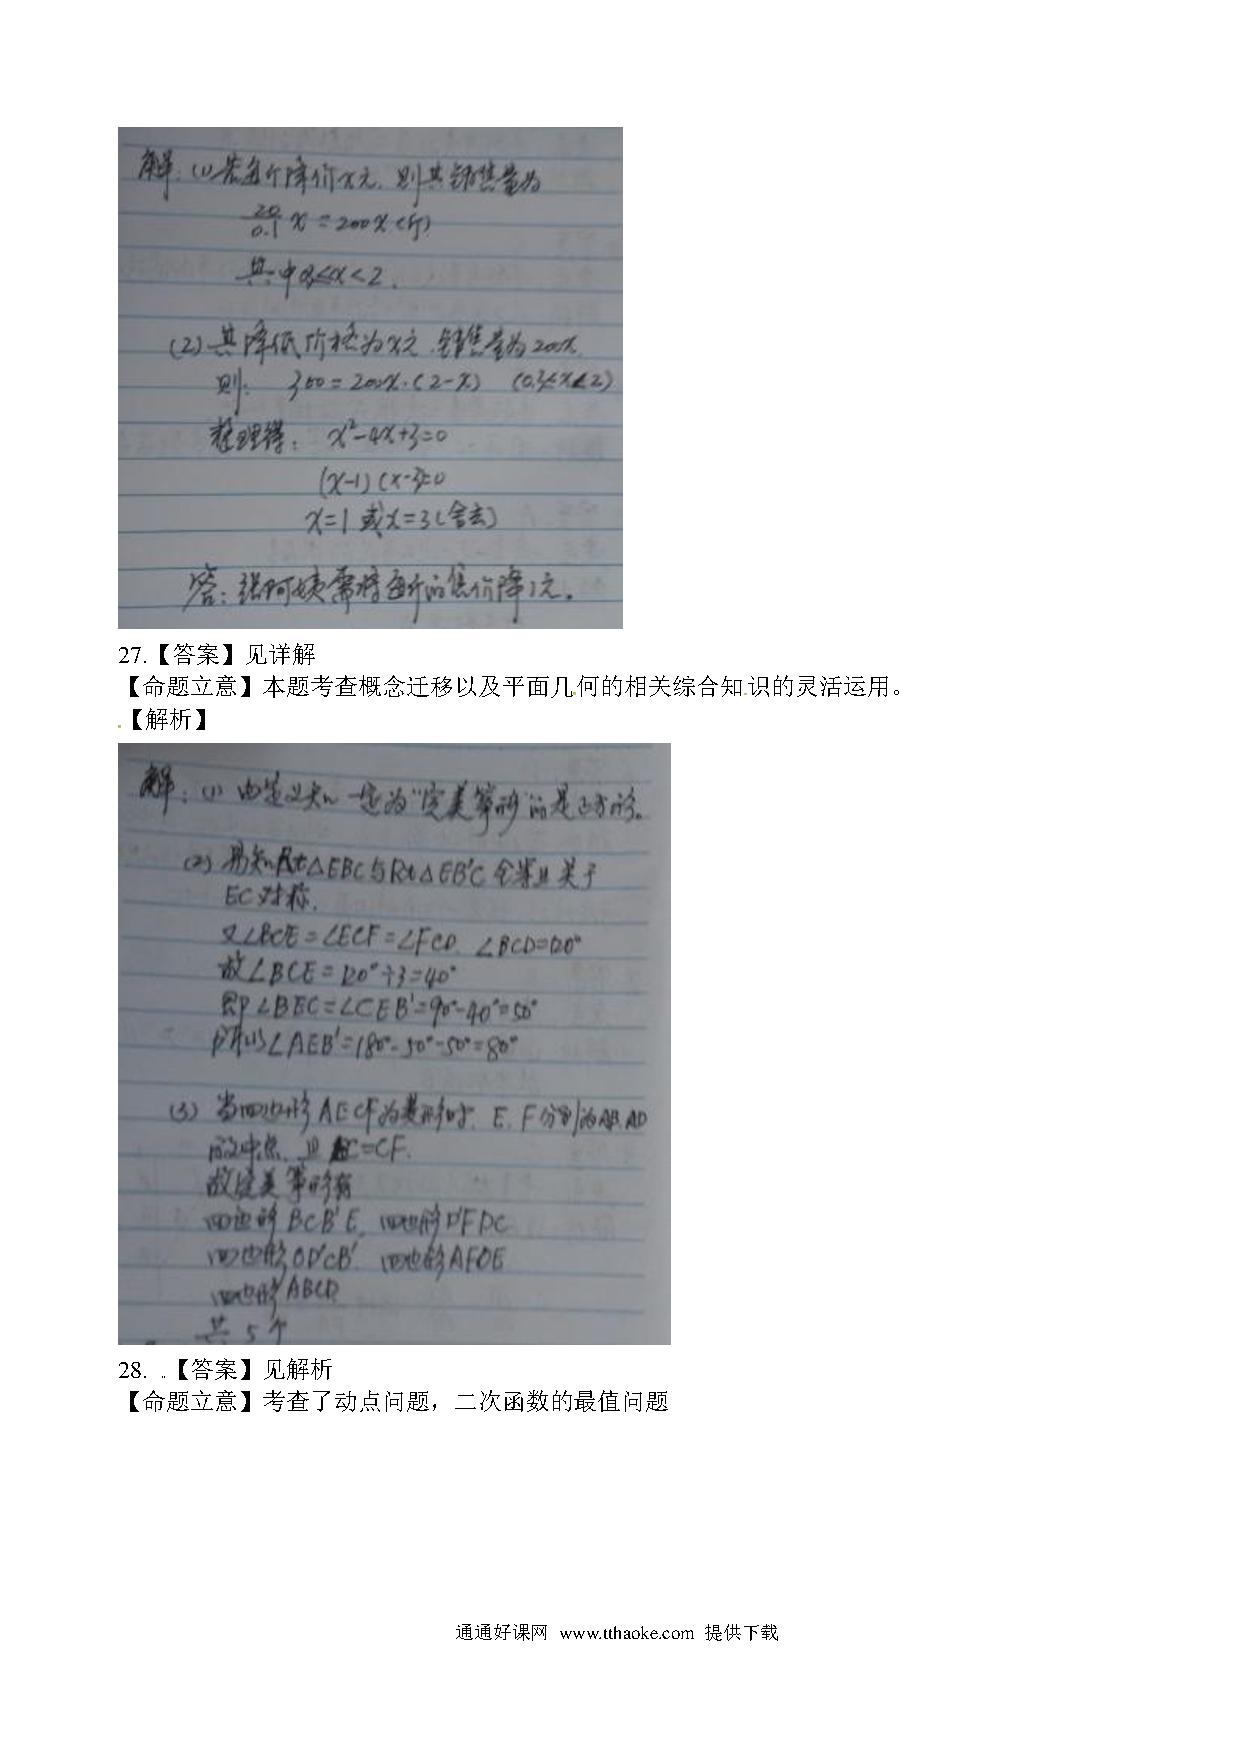 解:(1)若每斤降价x元,则其销售量为
20/0.1 x=200x(斤)
其中0.3≤x<2.
(2)其降低价格为x元,销售量为200x.
则: 300=200x·(2-x) (0.3≤x<2)
整理得: x²-4x+3=0
(x-1)(x-3)=0
x=1 或x=3(舍去)
答:张阿姨需将每斤的售价降1元。
27.【答案】见详解
【命题立意】本题考查概念迁移以及平面几何的相关综合知识的灵活运用。
【解析】
解:(1) 由定义知 一定为“完美筝形”的是正方形。
(2) 易知Rt△EBC与Rt△EB'C 全等且关于
EC对称.
又∠BCE=∠ECF=∠FCD. ∠BCD=120°
故∠BCE=120°÷3=40°
即∠BEC=∠CEB'=90°-40°=50°
所以∠AEB'=180°-50°-50°=80°
(3) 当四边形AECF为菱形时. E、F分别为AB、AD
的中点 且 C=CF.
故完美筝形有
四边形BCB'E、四边形D'FDC
四边形OD'CB'、四边形AFOE
四边形ABCD
共5个
28. 【答案】见解析
【命题立意】考查了动点问题，二次函数的最值问题
通通好课网 www.tthaoke.com 提供下载